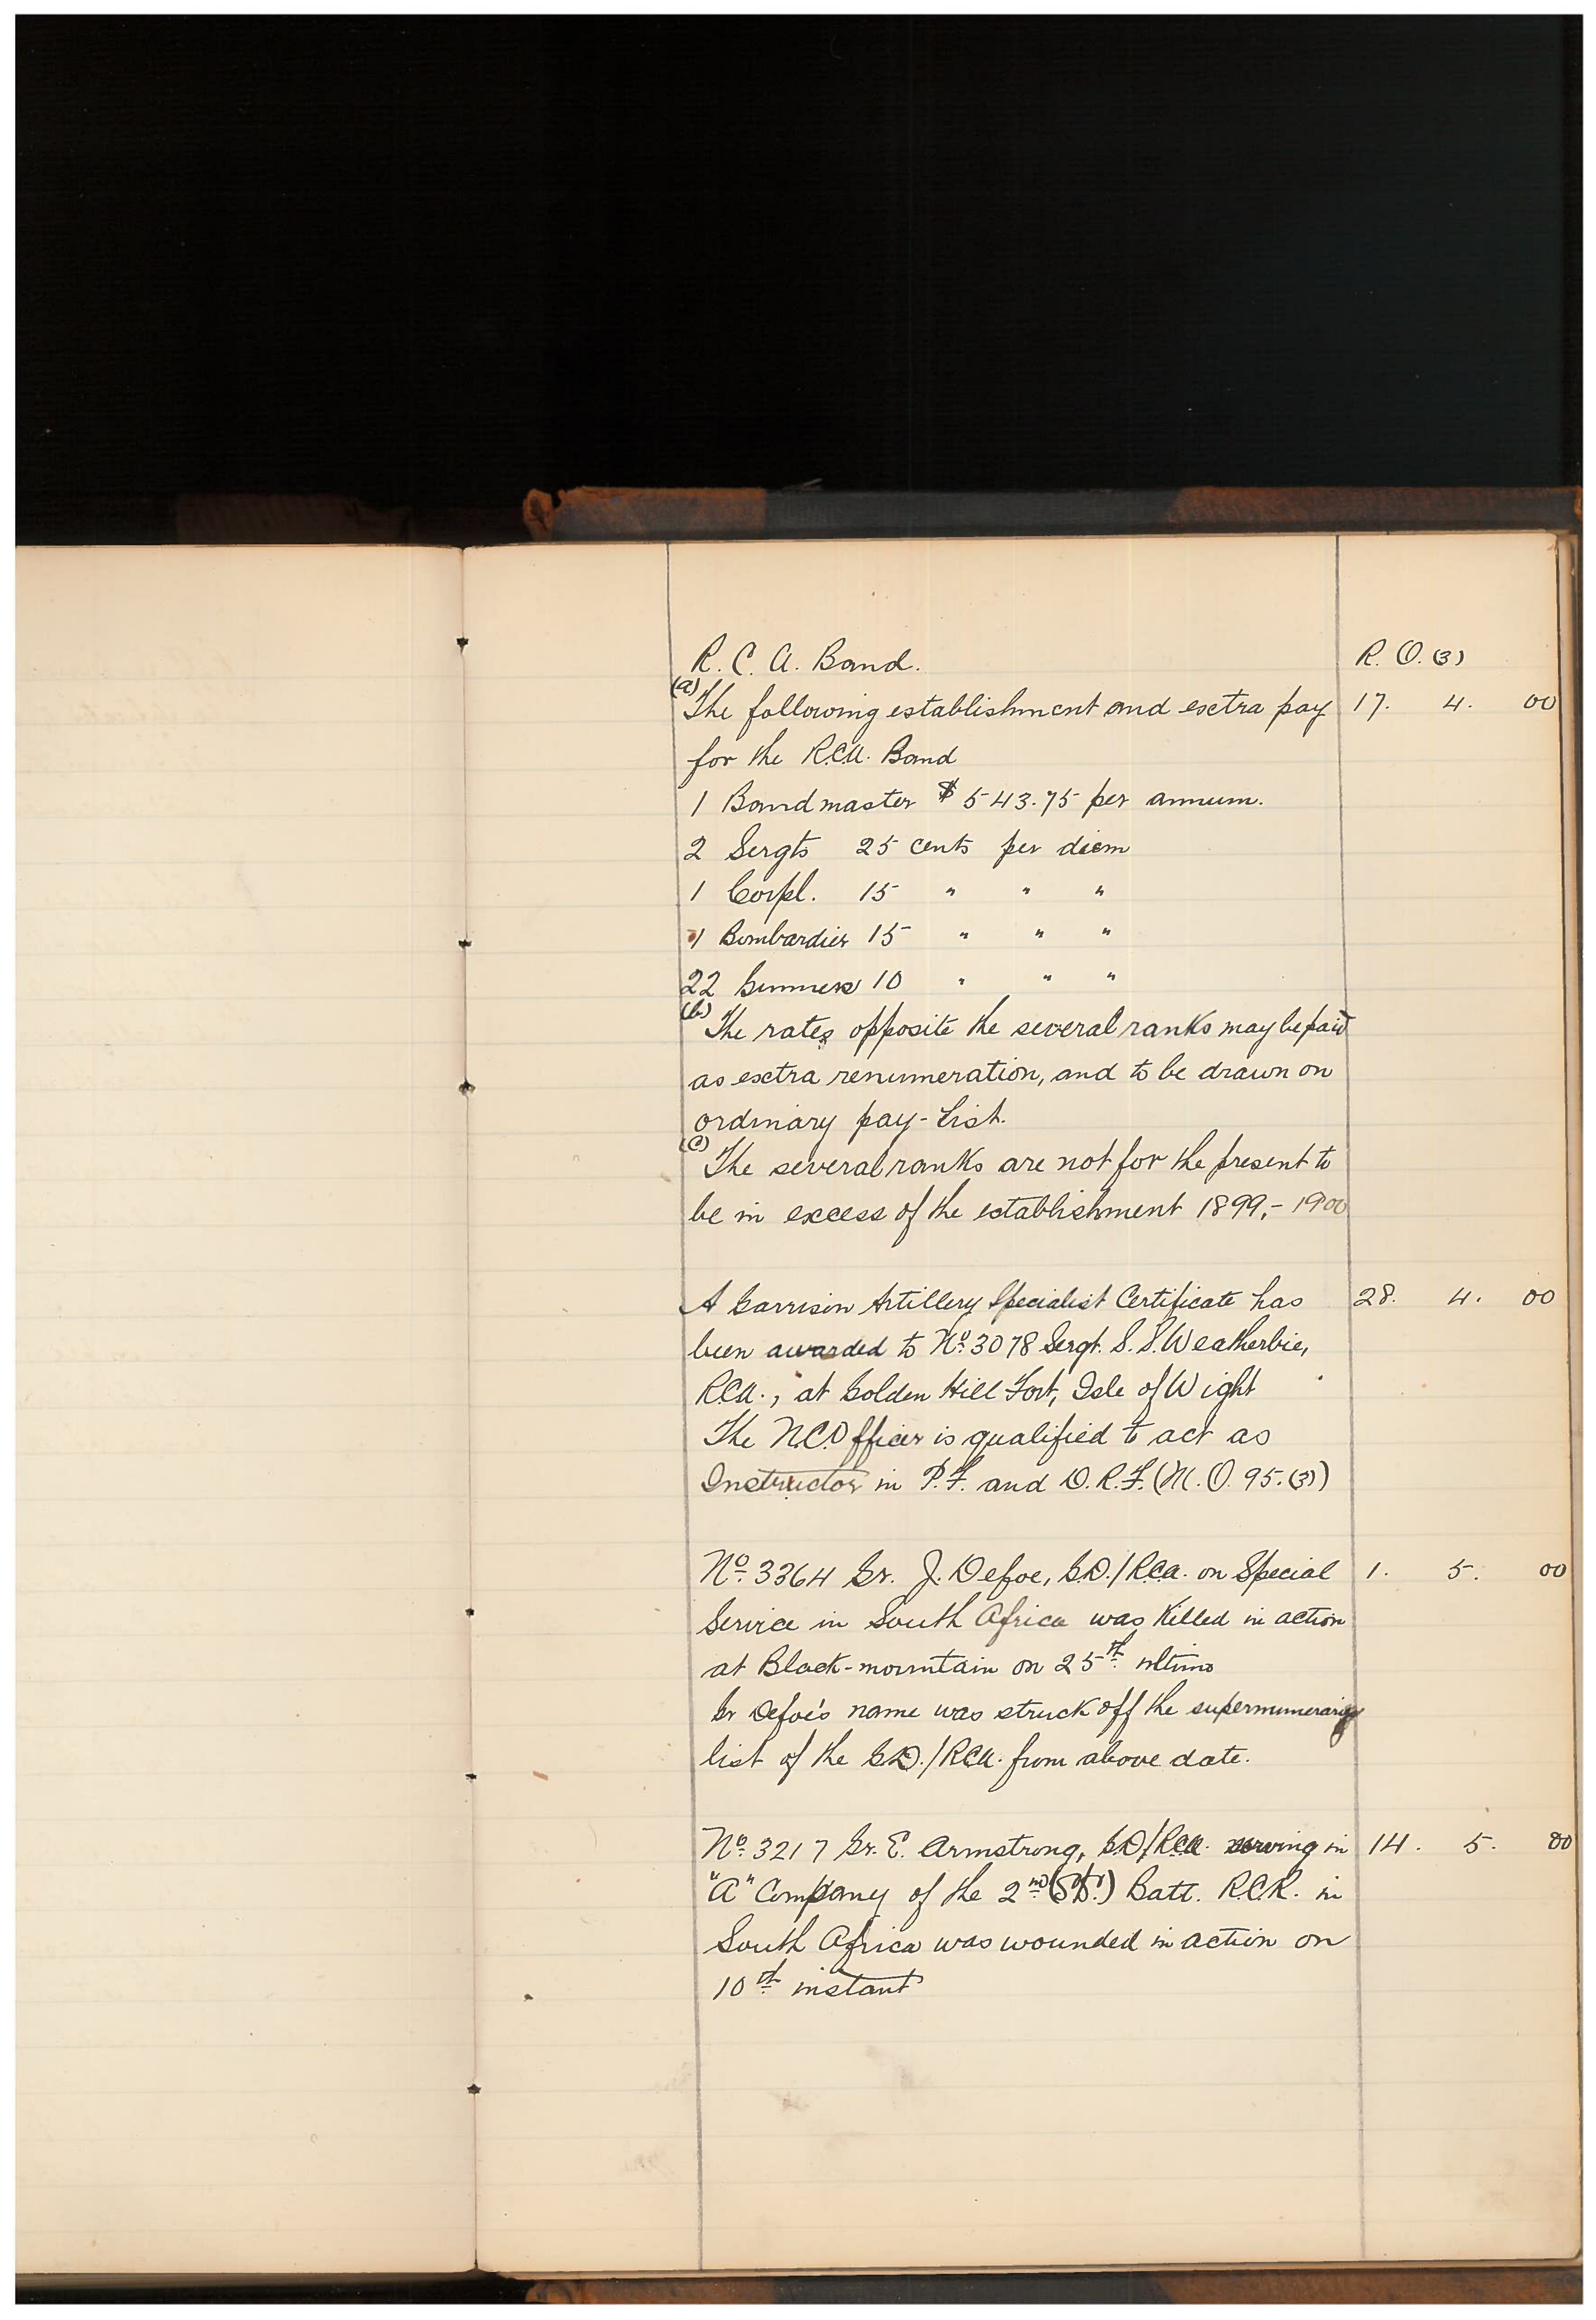 R. C. A. Band. R. O. (3)
(a) The following establishment and extra pay 17. 4. 00
for the R.C.A. Band
1 Bandmaster $543.75 per annum.
2 Sergts 25 cents per diem
1 Corpl. 15 " " "
1 Bombardier 15 " " "
22 Gunners 10 " " "
(b) The rates opposite the several ranks may be paid
as extra renumeration, and to be drawn on
ordinary pay-list.
(c) The several ranks are not for the present to
be in excess of the establishment 1899,-1900
A Garrison Artillery Specialist Certificate has 28. 4. 00
been awarded to No. 3078 Sergt. S. S. Weatherbie,
R.C.A., at Golden Hill Fort, Isle of Wight
The N.C.Officer is qualified to act as
Instructor in P.F. and D.R.F. (M.O. 95.(3))
No. 3364 Gr. J. Defoe, G.D./R.C.A. on Special 1. 5. 00
Service in South Africa was Killed in action
at Black-mountain on 25th ultimo
Gr Defoe's name was struck off the supernumerary
list of the G.D./R.C.A. from above date.
No. 3217 Gr. E. Armstrong, G.D/R.C.A. serving in 14. 5. 00
"A" Company of the 2nd (S.S.) Batt. R.C.R. in
South Africa was wounded in action on
10th instant